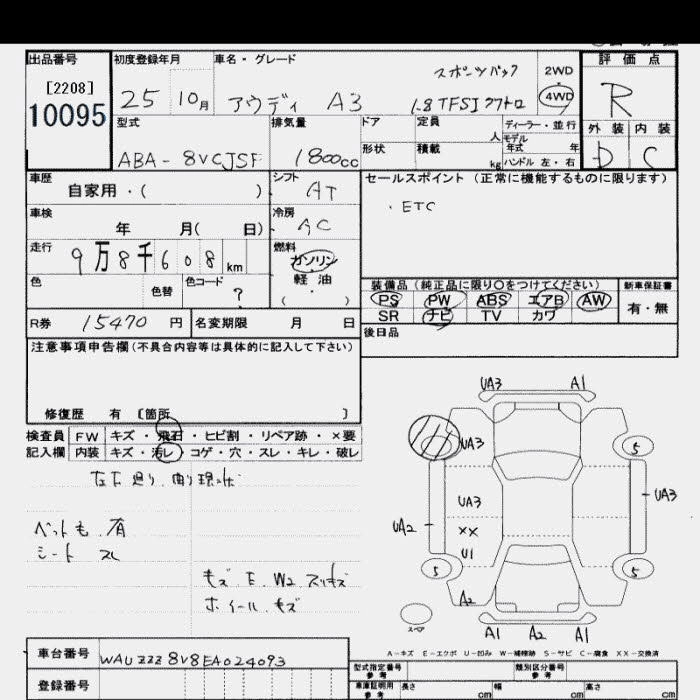 出品番号 初度登録年月 車名・グレード 評価点
[2208] スポーツバック 2WD
10095 25 10月 アウディ A3 1.8 TFSI クワトロ 4WD R
型式 排気量 ドア 定員 ディーラー・並行 外装 内装
人 モデル年式 年
ABA-8VCJSF 1800cc 形状 積載 kg ハンドル 左・右 D C
車歴 シフト セールスポイント (正常に機能するものに限ります)
自家用・( ) AT
・ETC
車検 冷房
年 月( 日) AC
走行 燃料
9万8千608km ガソリン
色 色替 色コード ? 軽油
( )
装備品 (純正品に限り○をつけてください) 新車保証書
PS PW ABS エアB AW 有・無
SR ナビ TV カワ
R券 15470円 名変期限 月 日
後日品
注意事項申告欄(不具合内容等は具体的に記入して下さい)
修復歴 有 〔箇所 〕
検査員 FW キズ・飛石・ヒビ割・リペア跡・×要
記入欄 内装 キズ・汚レ・コゲ・穴・スレ・キレ・破レ
UA3 A1
UA3 5
UA3 UA3
UA2 XX
U1
5 5
A2
スペア
A1 A2 A1
ペット毛 有
シート スレ
キズ E W2 スリキズ
ホイール キズ
A-キズ E-エクボ U-凹み W-補修跡 S-サビ C-腐食 XX-交換済
車台番号 WAUZZZ8V8EA024093
型式指定番号 参考 類別区分番号 参考
登録番号 車庫証明用 参考 長さ cm 幅 cm 高さ cm